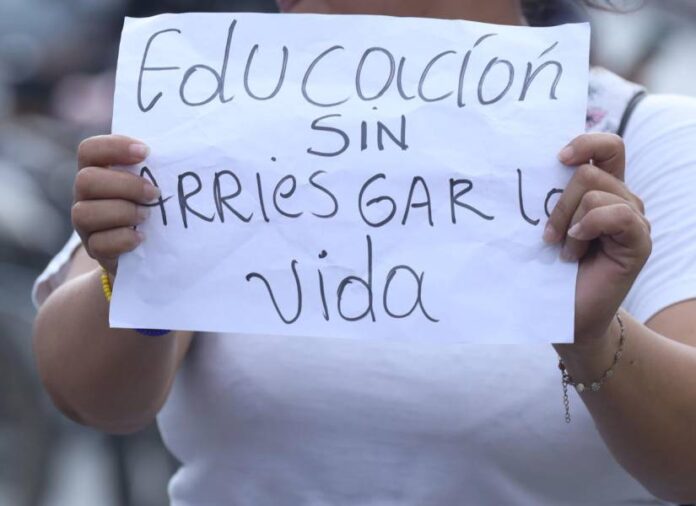 Educación
SIN
ARRiesGAR la
vida